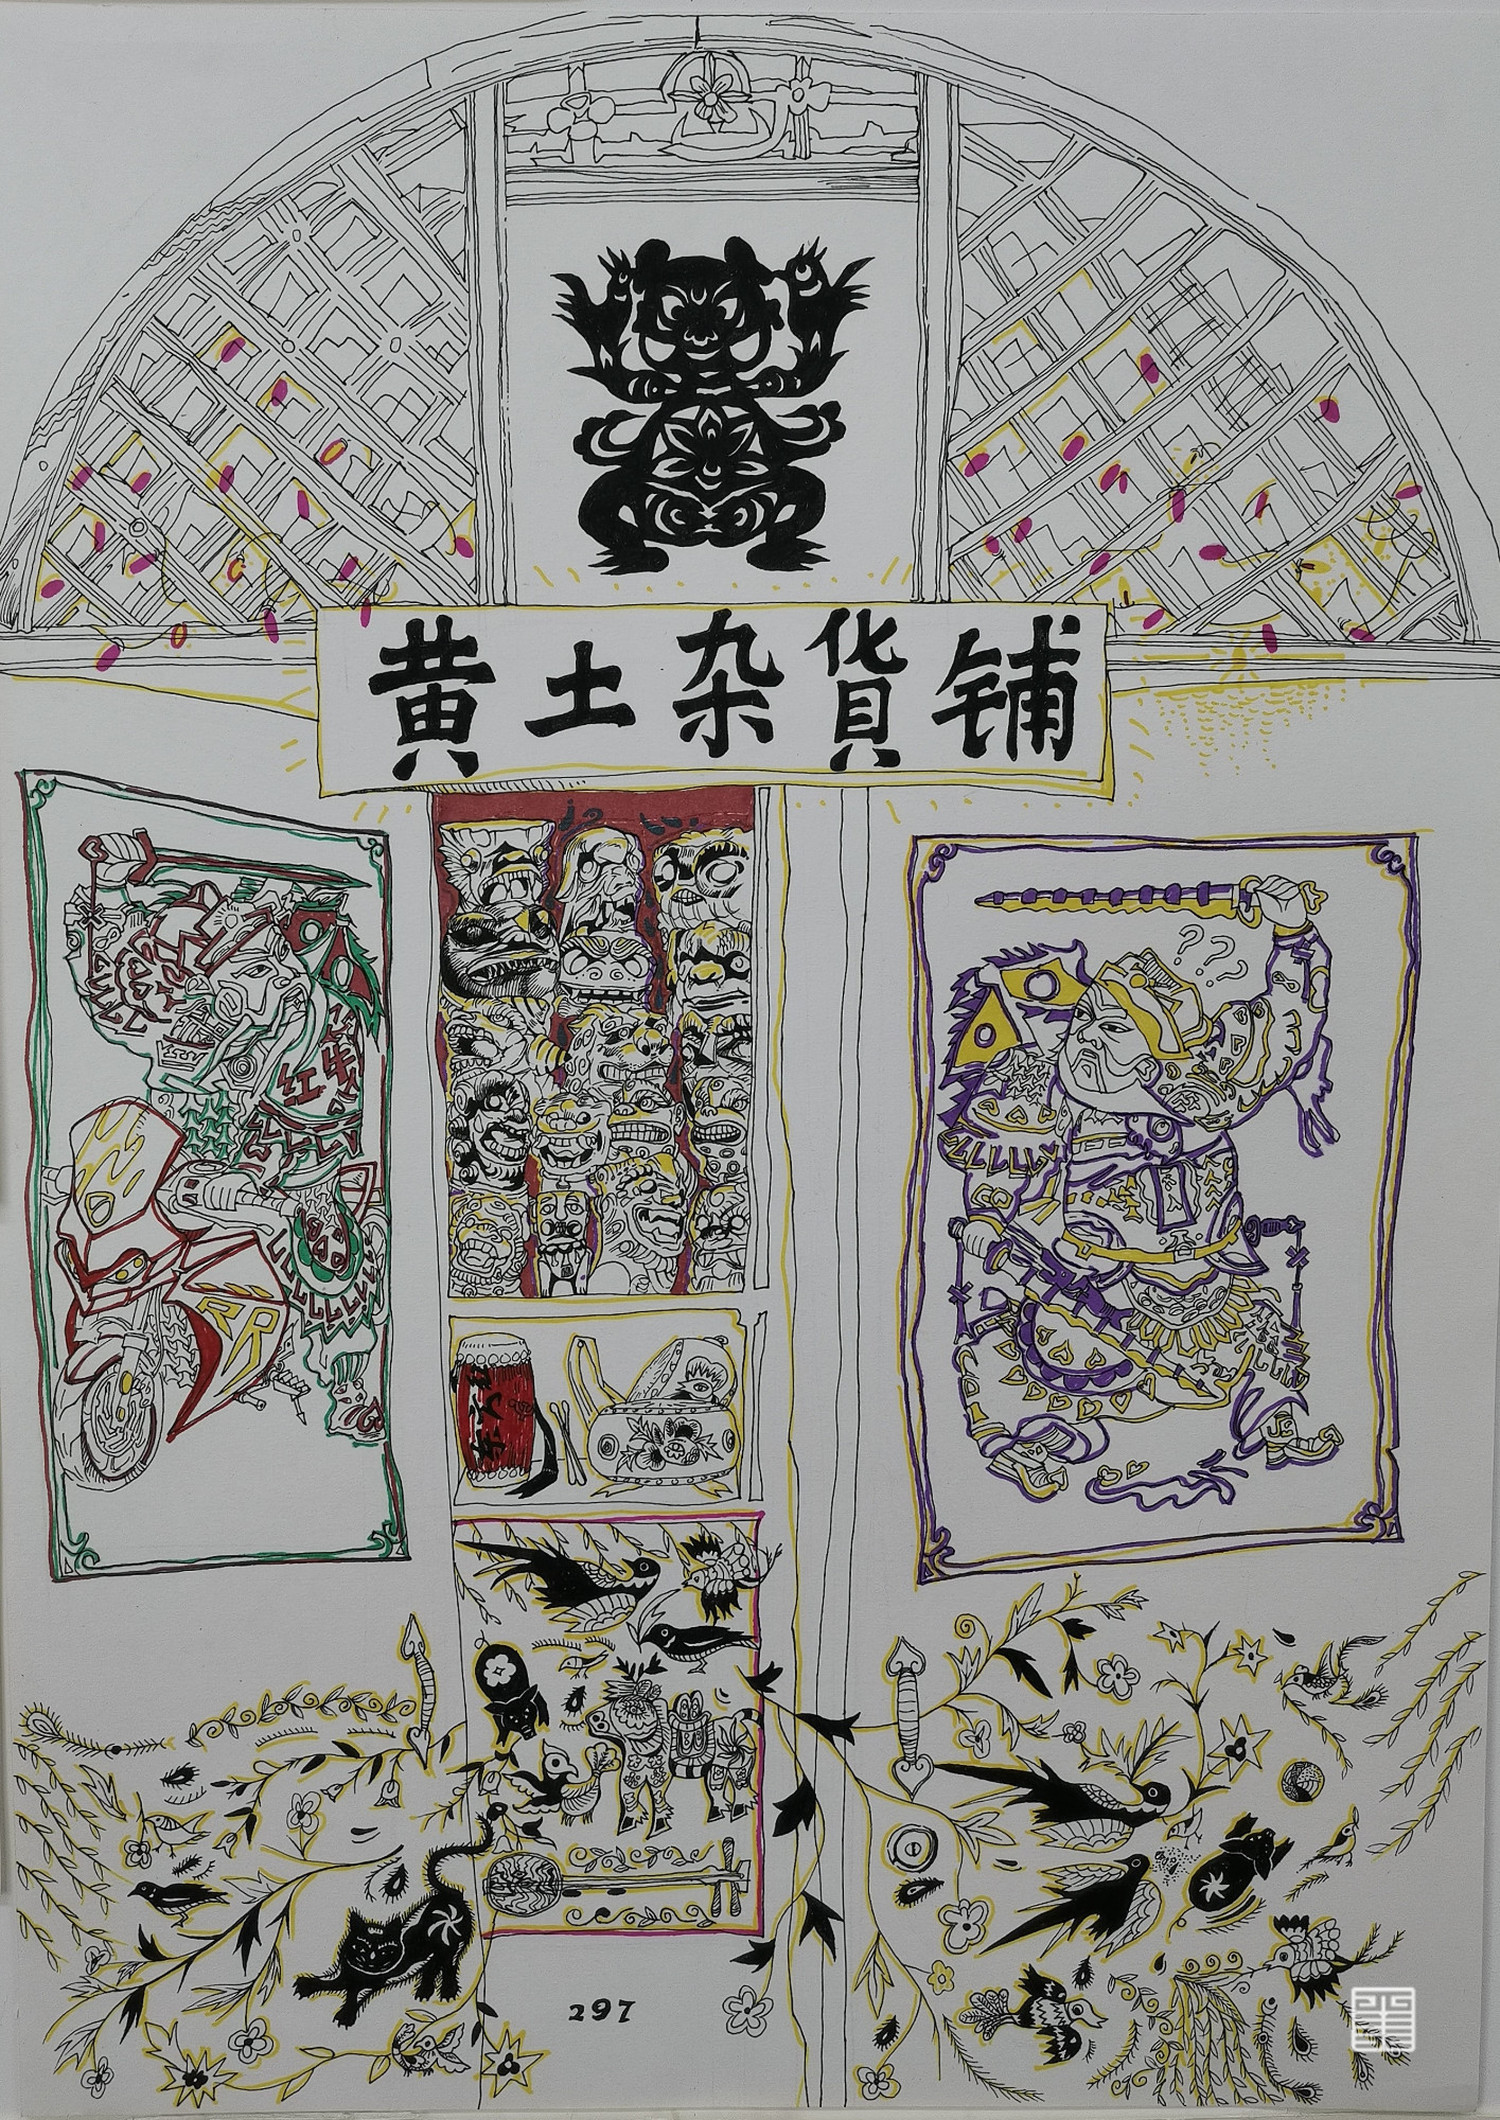 黄土杂货铺
? ? ?
红牛
RR
297